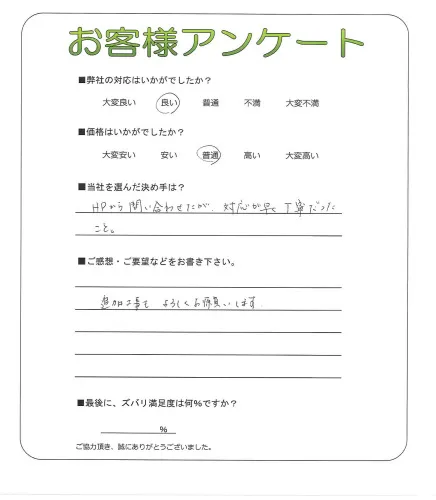 お客様アンケート
■弊社の対応はいかがでしたか？
大変良い 良い 普通 不満 大変不満
■価格はいかがでしたか？
大変安い 安い 普通 高い 大変高い
■当社を選んだ決め手は？
HPから問い合わせたが、対応が早く丁寧だった
こと。
■ご感想・ご要望などをお書き下さい。
追加工事もよろしくお願いします。
■最後に、ズバリ満足度は何%ですか？
%
ご協力頂き、誠にありがとうございました。